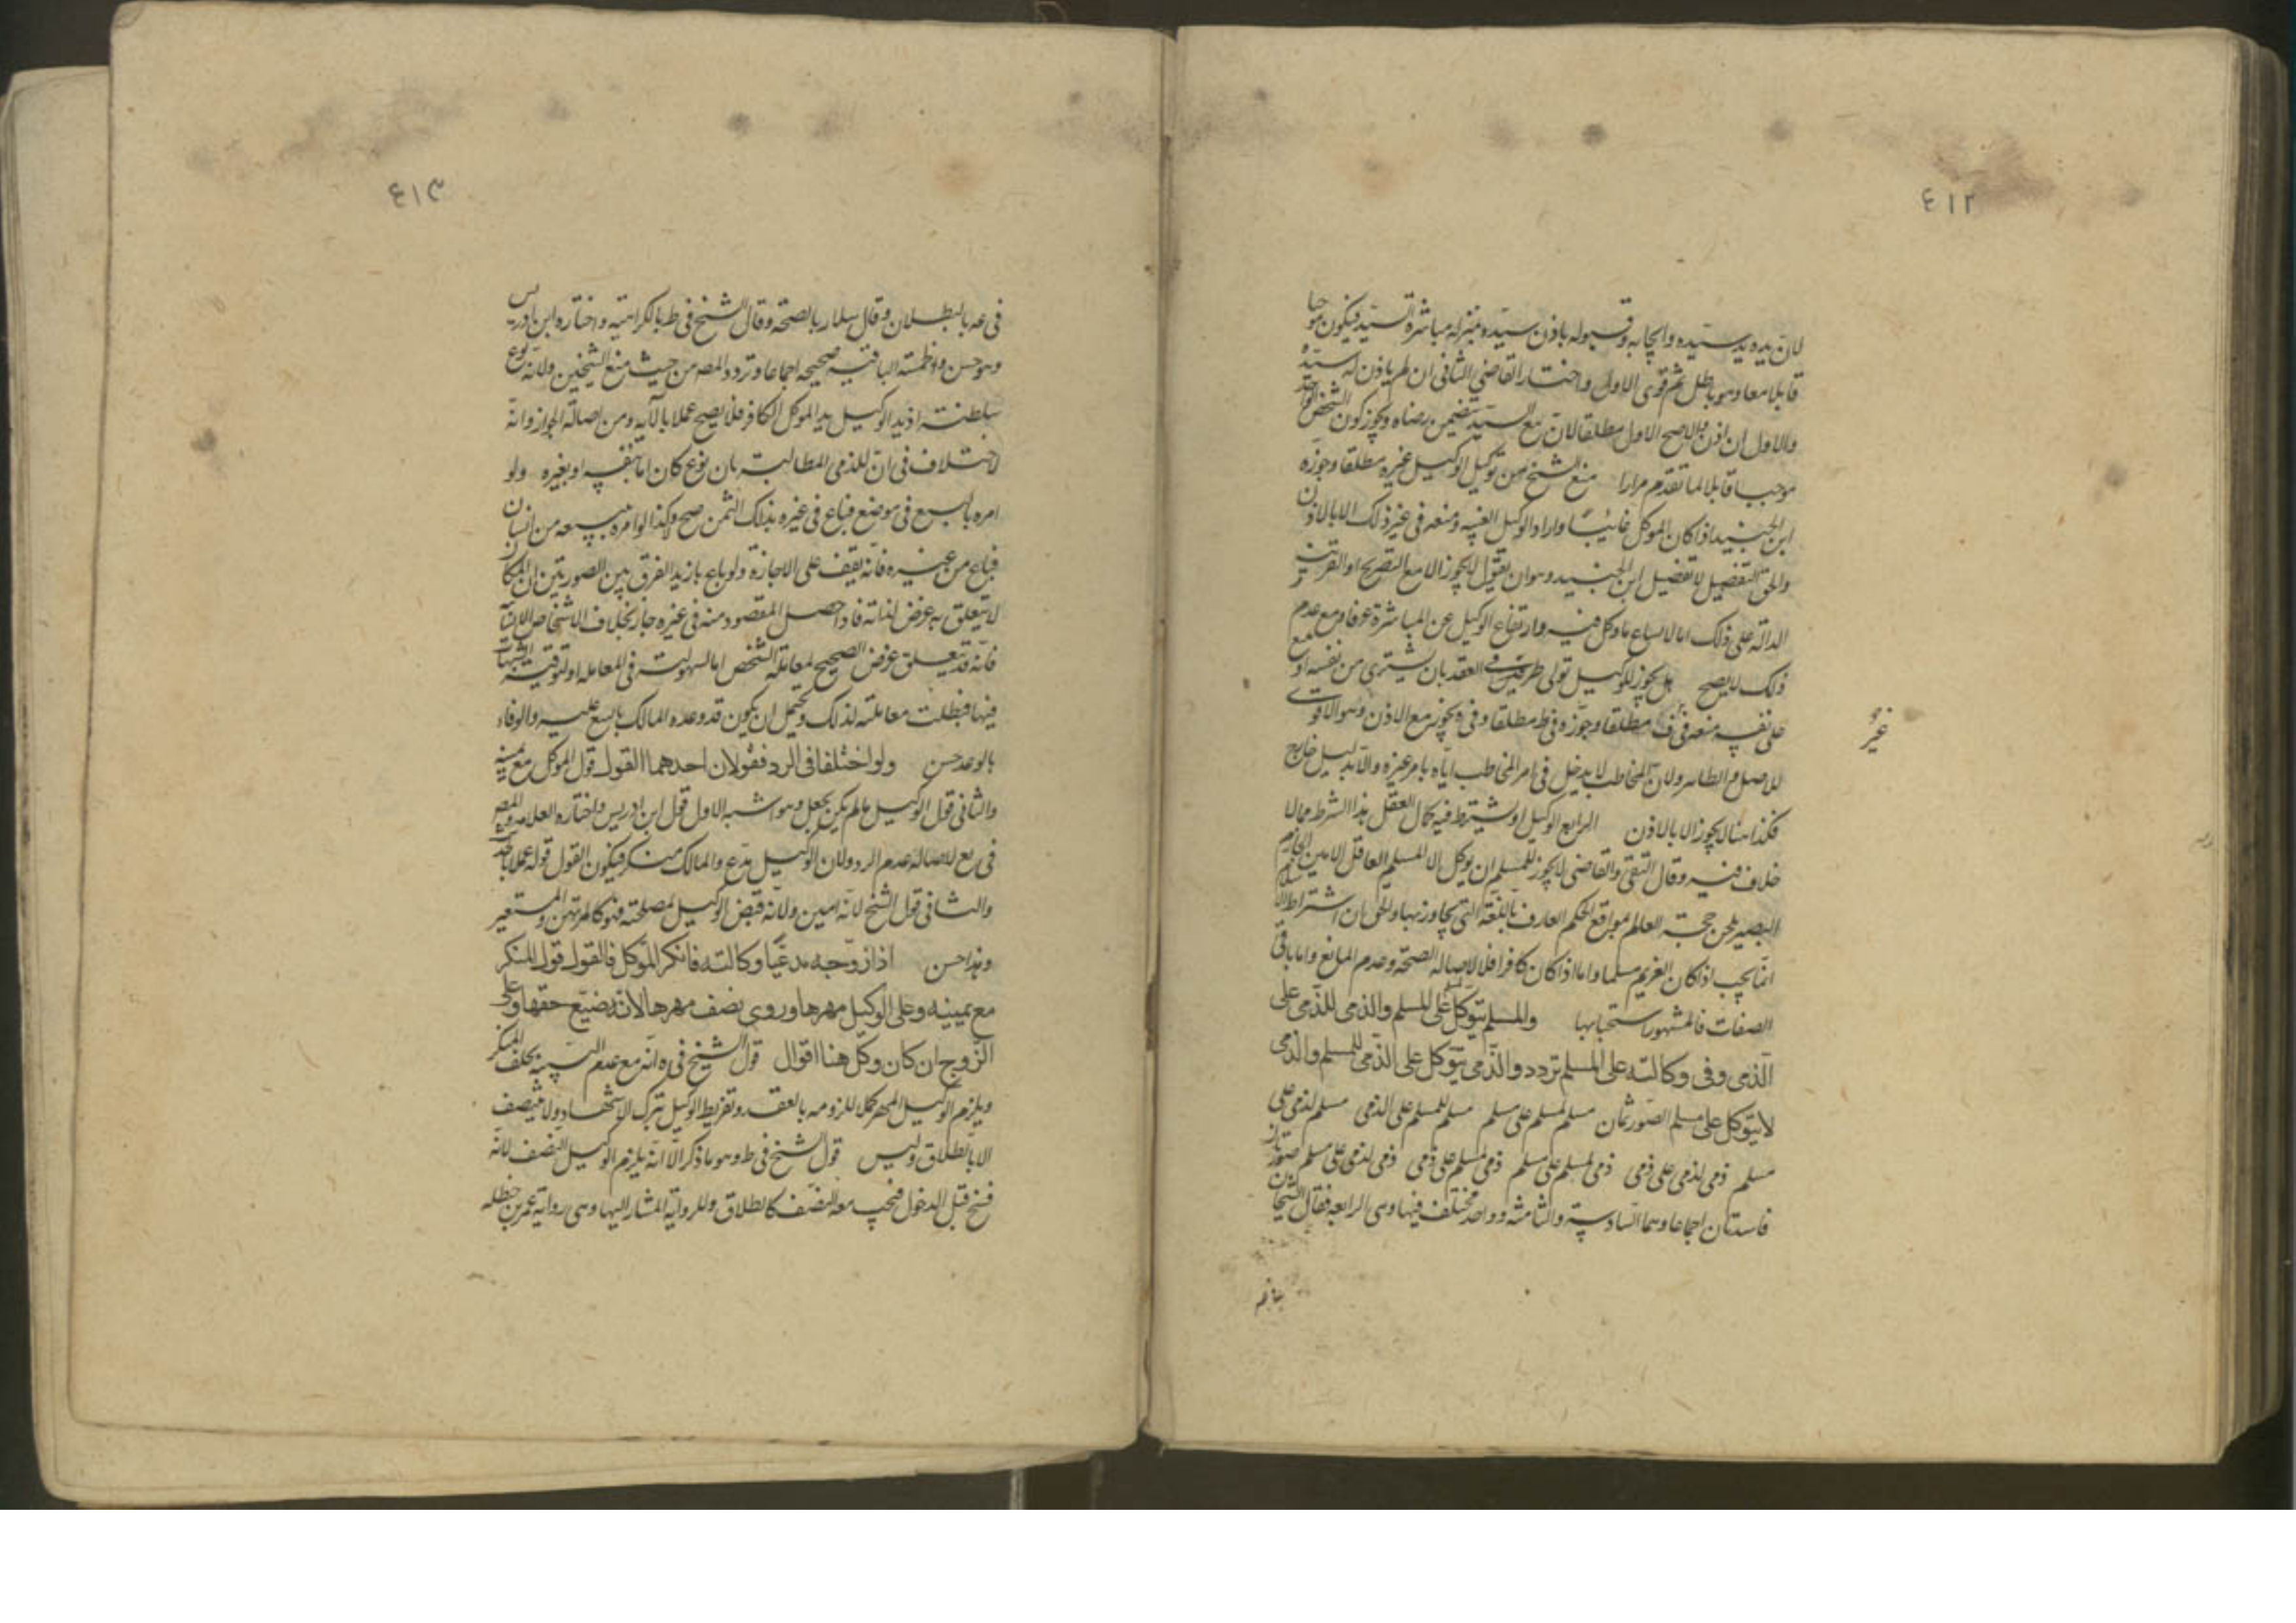 ٤١٢
لان يده يد سيده وايجابه وقبوله باذن سيده بمنزلة مباشرة السيد فيكون موجبا
قابلا معا وهو باطل ثم قوى الاول واختار القاضي الثاني ان لم ياذن له سيده
والاول ان اذن والاصح الاول مطلقا لان بيع السيد يتضمن رضاه ويجوز كون الشخص الواحد
موجبا قابلا لما تقدم مرارا منع الشيخ من توكيل الوكيل غيره مطلقا وجوزه
ابن الجنيد اذا كان الموكل غائبا واراد الوكيل الغيبه ومنعه في غير ذلك الا بالاذن
والحق التفصيل لا تفصيل ابن الجنيد وهو ان يقول لا يجوز الا مع التصريح او القرينة
الدالة على ذلك اما لاتساع ما وكل فيه وارتفاع الوكيل عن المباشرة عرفا ومع عدم
ذلك لا يصح هل يجوز للوكيل تولى طرفي العقد بان يشترى من نفسه او يبيع
على نفسه منعه في ف مطلقا وجوزه في ط مطلقا وفي ه يجوز مع الاذن وهو الاقوى
غير
للاصل والظاهر ولان المخاطب لا يدخل في امر المخاطب اياه بامر غيره والا بدليل خارج
فكذا هنا لا يجوز الا بالاذن الرابع الوكيل ويشترط فيه كمال العقل هذا الشرط مما لا
خلاف فيه وقال التقى والقاضي لا يجوز للمسلم ان يوكل الا المسلم العاقل الامين الحازم
البصير بلحن حجته العالم بمواقع الحكم العارف باللغة التي يحاور بها والحق ان اشتراط الاسلام
انما يجب اذا كان الغريم مسلما واما اذا كان كافرا فلا لاصالة الصحة وعدم المانع واما باقي
الصفات فالمشهور استحبابها والمسلم يتوكل للمسلم على المسلم والذمى للذمى على
الذمى وفى وكالته على المسلم تردد والذمى يتوكل على الذمى للمسلم والذمى
لا يتوكل على مسلم الصور ثمان مسلم لمسلم على مسلم مسلم للمسلم على الذمى مسلم لذمى على
مسلم ذمى لذمى على ذمى ذمى لمسلم على مسلم ذمى لمسلم على ذمى ذمى لذمى على مسلم صورتان
فاسدتان اجماعا وهما السادسة والثامنة وواحد مختلف فيها وهى الرابعة فقال الشيخان
٤١٣
في عه بالبطلان وقال سلار بالصحة وقال الشيخ في ط بالكراهية واختاره ابن ادريس
وهو حسن والخمسة الباقية صحيحه اجماعا وتردد المصه من حيث منع الشيخين ولانه نوع
سلطنة اذ يد الوكيل يد الموكل الكافر فلا يصح عملا بالآية ومن اصالة الجواز وانه
لا اختلاف في ان للذمى المطالبة باى نوع كان اما بنفسه او بغيره ولو
امره بالبيع في موضع فباع في غيره بذلك الثمن صح وكذا لو امره ببيعه من انسان
فباع من غيره فانه يقف على الاجازة ولو باع بازيد الفرق بين الصورتين ان المكان
لا يتعلق به غرض لذاته فاذا حصل المقصود منه في غيره جاز بخلاف الاشخاص الانسانية
فانه قد يتعلق غرض الصحيح لمعاملة الشخص اما لسهولته في المعامله او لتوقيه الشبهات
فيها فبطلت معاملته لذلك ويحتمل ان يكون قد وعده المالك بالبيع عليه والوفاء
بالوعد حسن ولو اختلفا في الرد فقولان احدهما القول قول الموكل مع يمينه
والثانى قول الوكيل ما لم يكن بجعل وهو اشبه الاول قول ابن ادريس واختاره العلامه والمصه
في يع لاصالة عدم الرد ولان الوكيل مدع والمالك منكر فيكون القول قوله عملا بالحديث
والثانى قول الشيخ لانه امين ولانه قبض الوكيل لمصلحته فهو كالمرتهن والمستعير
وهذا حسن اذا زوجه مدعيا وكالته فانكر الموكل فالقول قول المنكر
مع يمينه وعلى الوكيل مهرها وروى نصف مهرها لانه ضيع حقها وعلى
الزوج ان كان وكل هنا اقوال قول الشيخ في ه انه مع عدم البينة يحلف المنكر
ويلزم الوكيل المهر كملا للزومه بالعقد وتفريط الوكيل بترك الاشهاد ولا ينتصف
الا بالطلاق وليس قول الشيخ في ط وهو ما ذكر الا انه يلزم الوكيل النصف لانه
فسخ قبل الدخول فيجب معه النصف كالطلاق وللرواية المشار اليها وهى رواية عمر بن حنظله